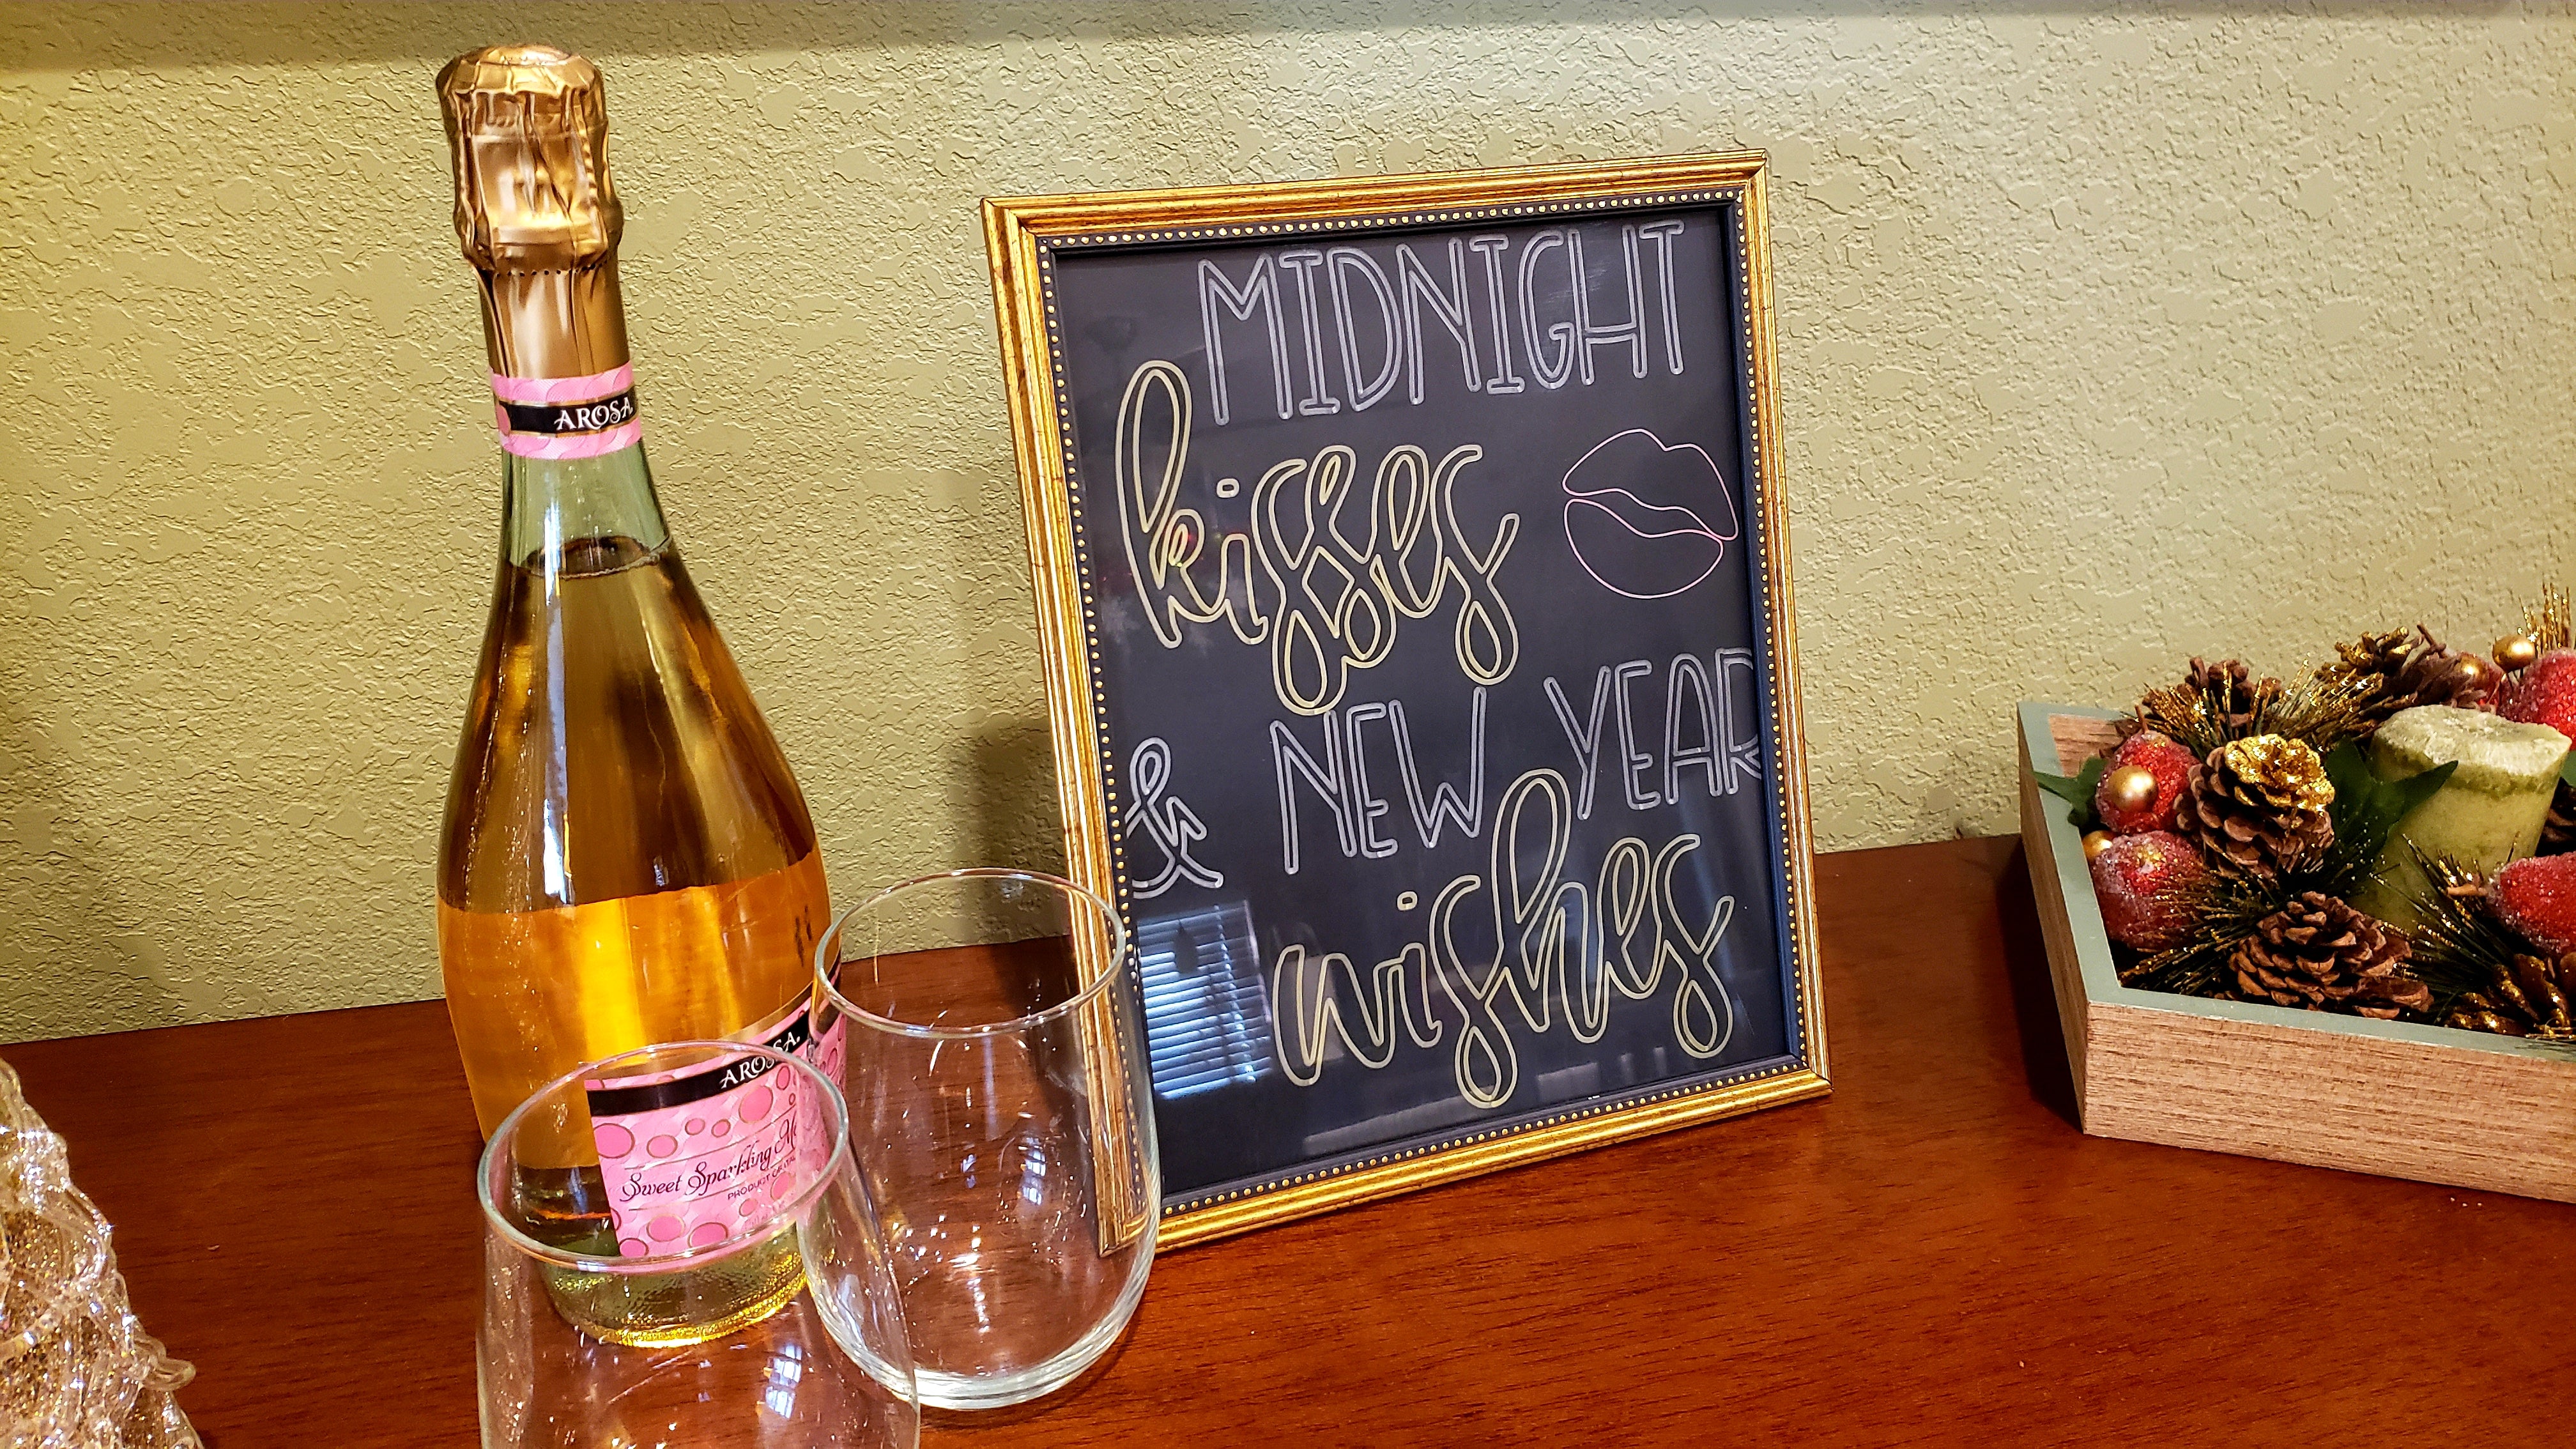 AROSA
MIDNIGHT
kisses
& NEW YEAR
wishes
AROSA
Sweet Sparkling
PRODUCT OF